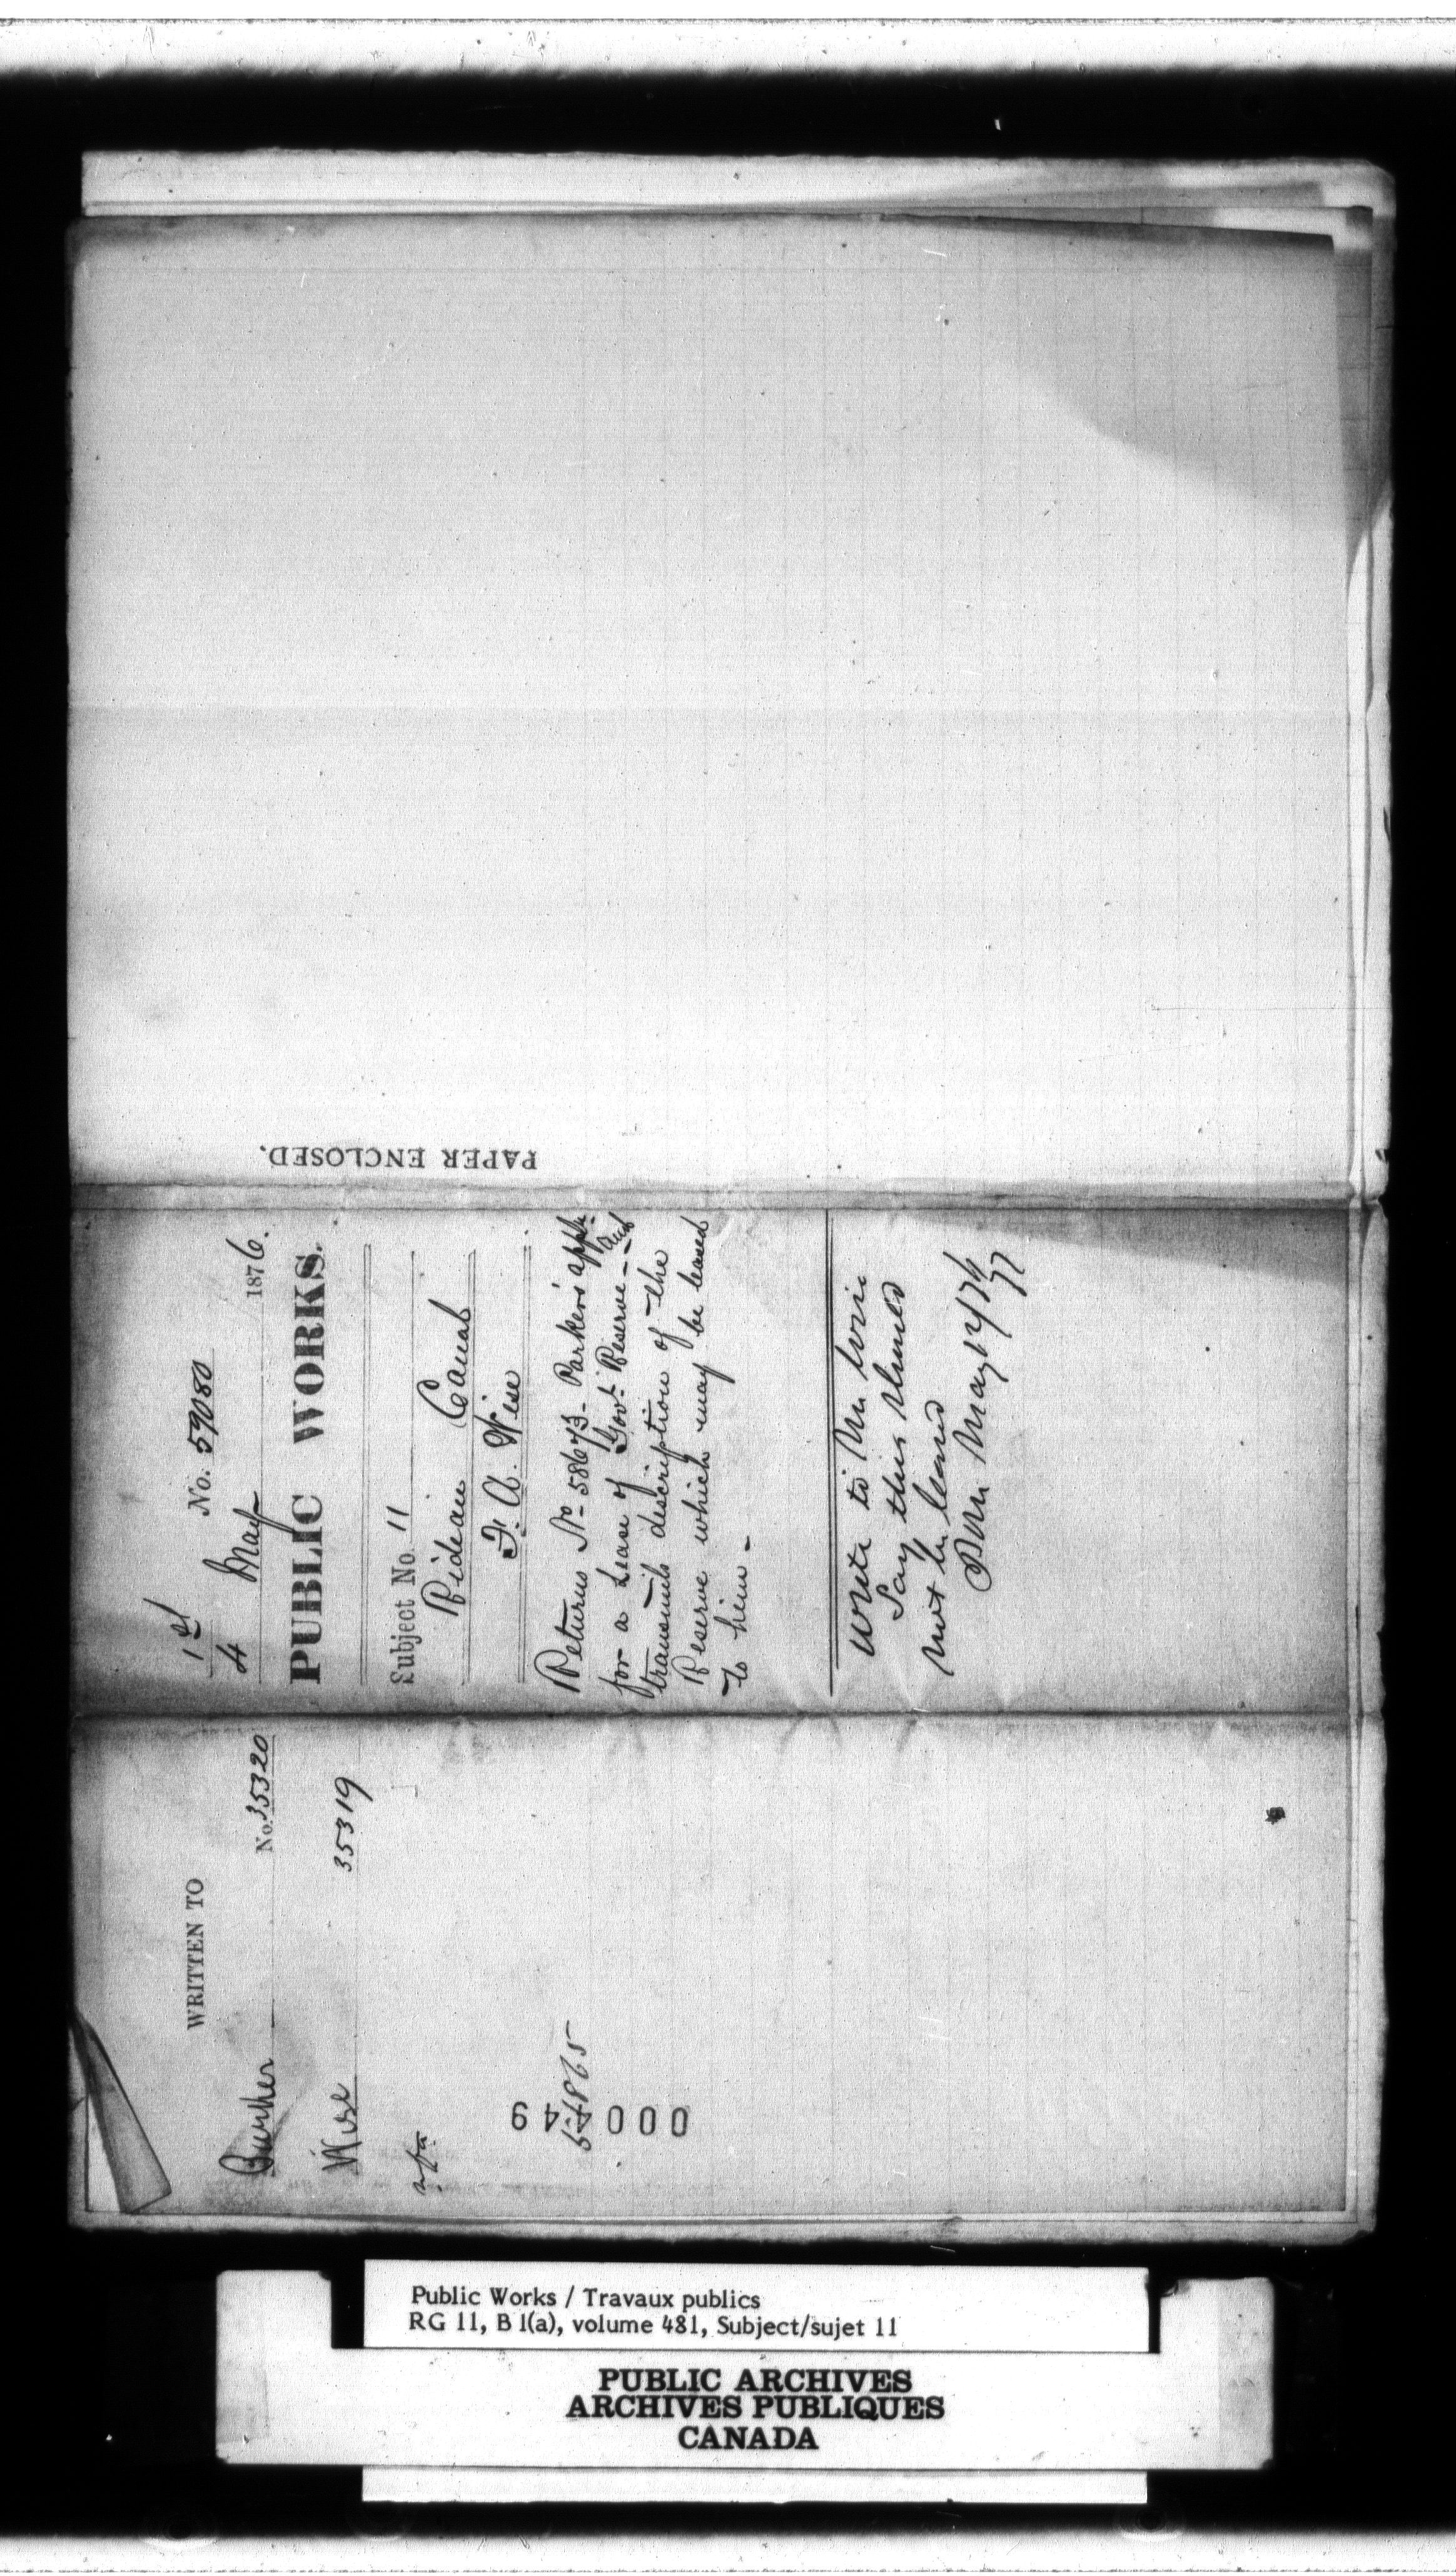 PAPER ENCLOSED.
1st No. 59080
4 May 1876.
PUBLIC WORKS.
Subject No. 11
Rideau Canal
F. A. Wise
Returns No 58673 - Parker's appln.
for a Lease of Govt Reserve - and
transmits description of the
Reserve which may be leased
to him -
Write to Mr
Say this should
not be leased
May
WRITTEN TO
No. 35320
Wise 35319
57865
000449
Public Works / Travaux publics
RG 11, B 1(a), volume 481, Subject/sujet 11
PUBLIC ARCHIVES
ARCHIVES PUBLIQUES
CANADA